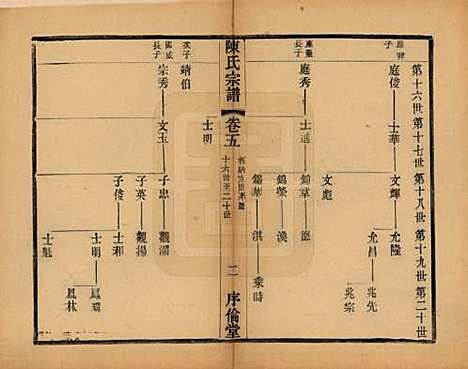 第十六世 第十七世 第十八世 第十九世 第二十世
子 庭俊 士華 文輝 允隆 兆先
允昌 兆宗
文彪
長子 庭秀 士進 錦章 龍
錦榮 漢
錦華 淇 乘時
陳氏宗譜
卷五
十六世至二十世
二
序倫堂
士明
次子 靖伯
國成長子 宗秀 文玉 子忠 觀瀾
子英 觀揚
子俊 士和
士明 鳳瑞
鳳林
士魁